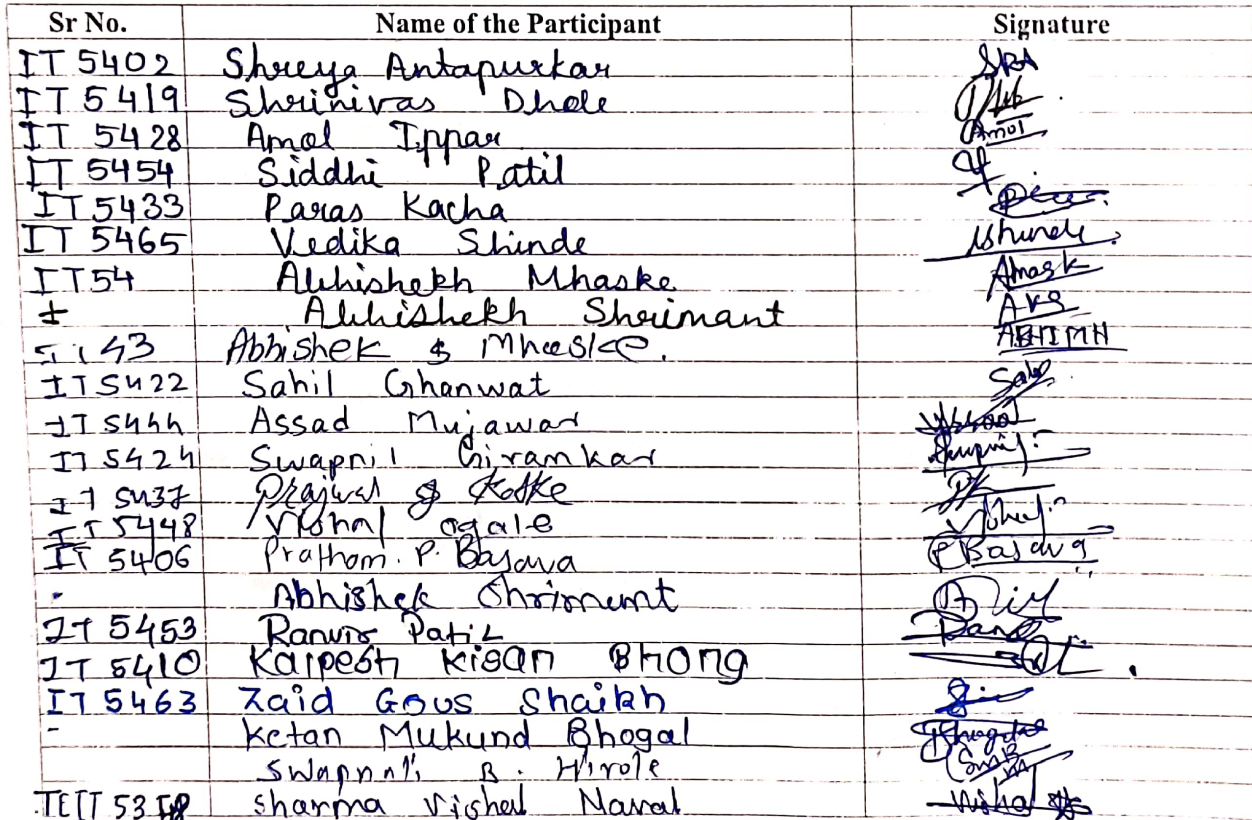 Sr No. Name of the Participant Signature
IT 5402 Shreya Antapurkar SRA
IT 5419 Shrinivas Dhole
IT 5428 Amol Ippar Amol
IT 5454 Siddhi Patil
IT 5433 Paras Kacha
IT 5465 Vedika Shinde
IT54 Abhishekh Mhaske Amask
Abhishekh Shrimant AKS
43 Abhishek S Mhaske. ABHIMH
IT5422 Sahil Ghanwat
IT5444 Assad Mujawar
IT 5424 Swapnil Giramkar
IT 5437 Prajwal Kolke PK
IT 5448 Vishal ogale
IT 5406 Pratham. P. Basava P Basava
- Abhishek Shrimant
IT 5453 Ranvir Patil
IT 5410 Kalpesh Kisan Bhong
IT 5463 Zaid Gous Shaikh
- Ketan Mukund Bhogal
Swapnali B. Hirole
TEIT 53 sharma Vishal Naval Vishal